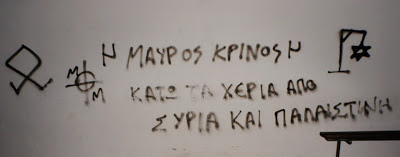 Η ΜΑΥΡΟΣ ΚΡΙΝΟΣ Η
Μ Μ
ΚΑΤΩ ΤΑ ΧΕΡΙΑ ΑΠΟ
ΣΥΡΙΑ ΚΑΙ ΠΑΛΑΙΣΤΙΝΗ